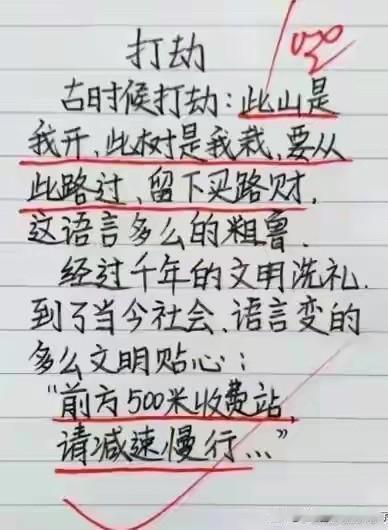 打劫
100
古时候打劫：此山是
我开，此树是我栽，要从
此路过，留下买路财，
这语言多么的粗鲁．
经过千年的文明洗礼．
到了当今社会、语言变的
多么文明贴心：
“前方500米收费站，
请减速慢行…”